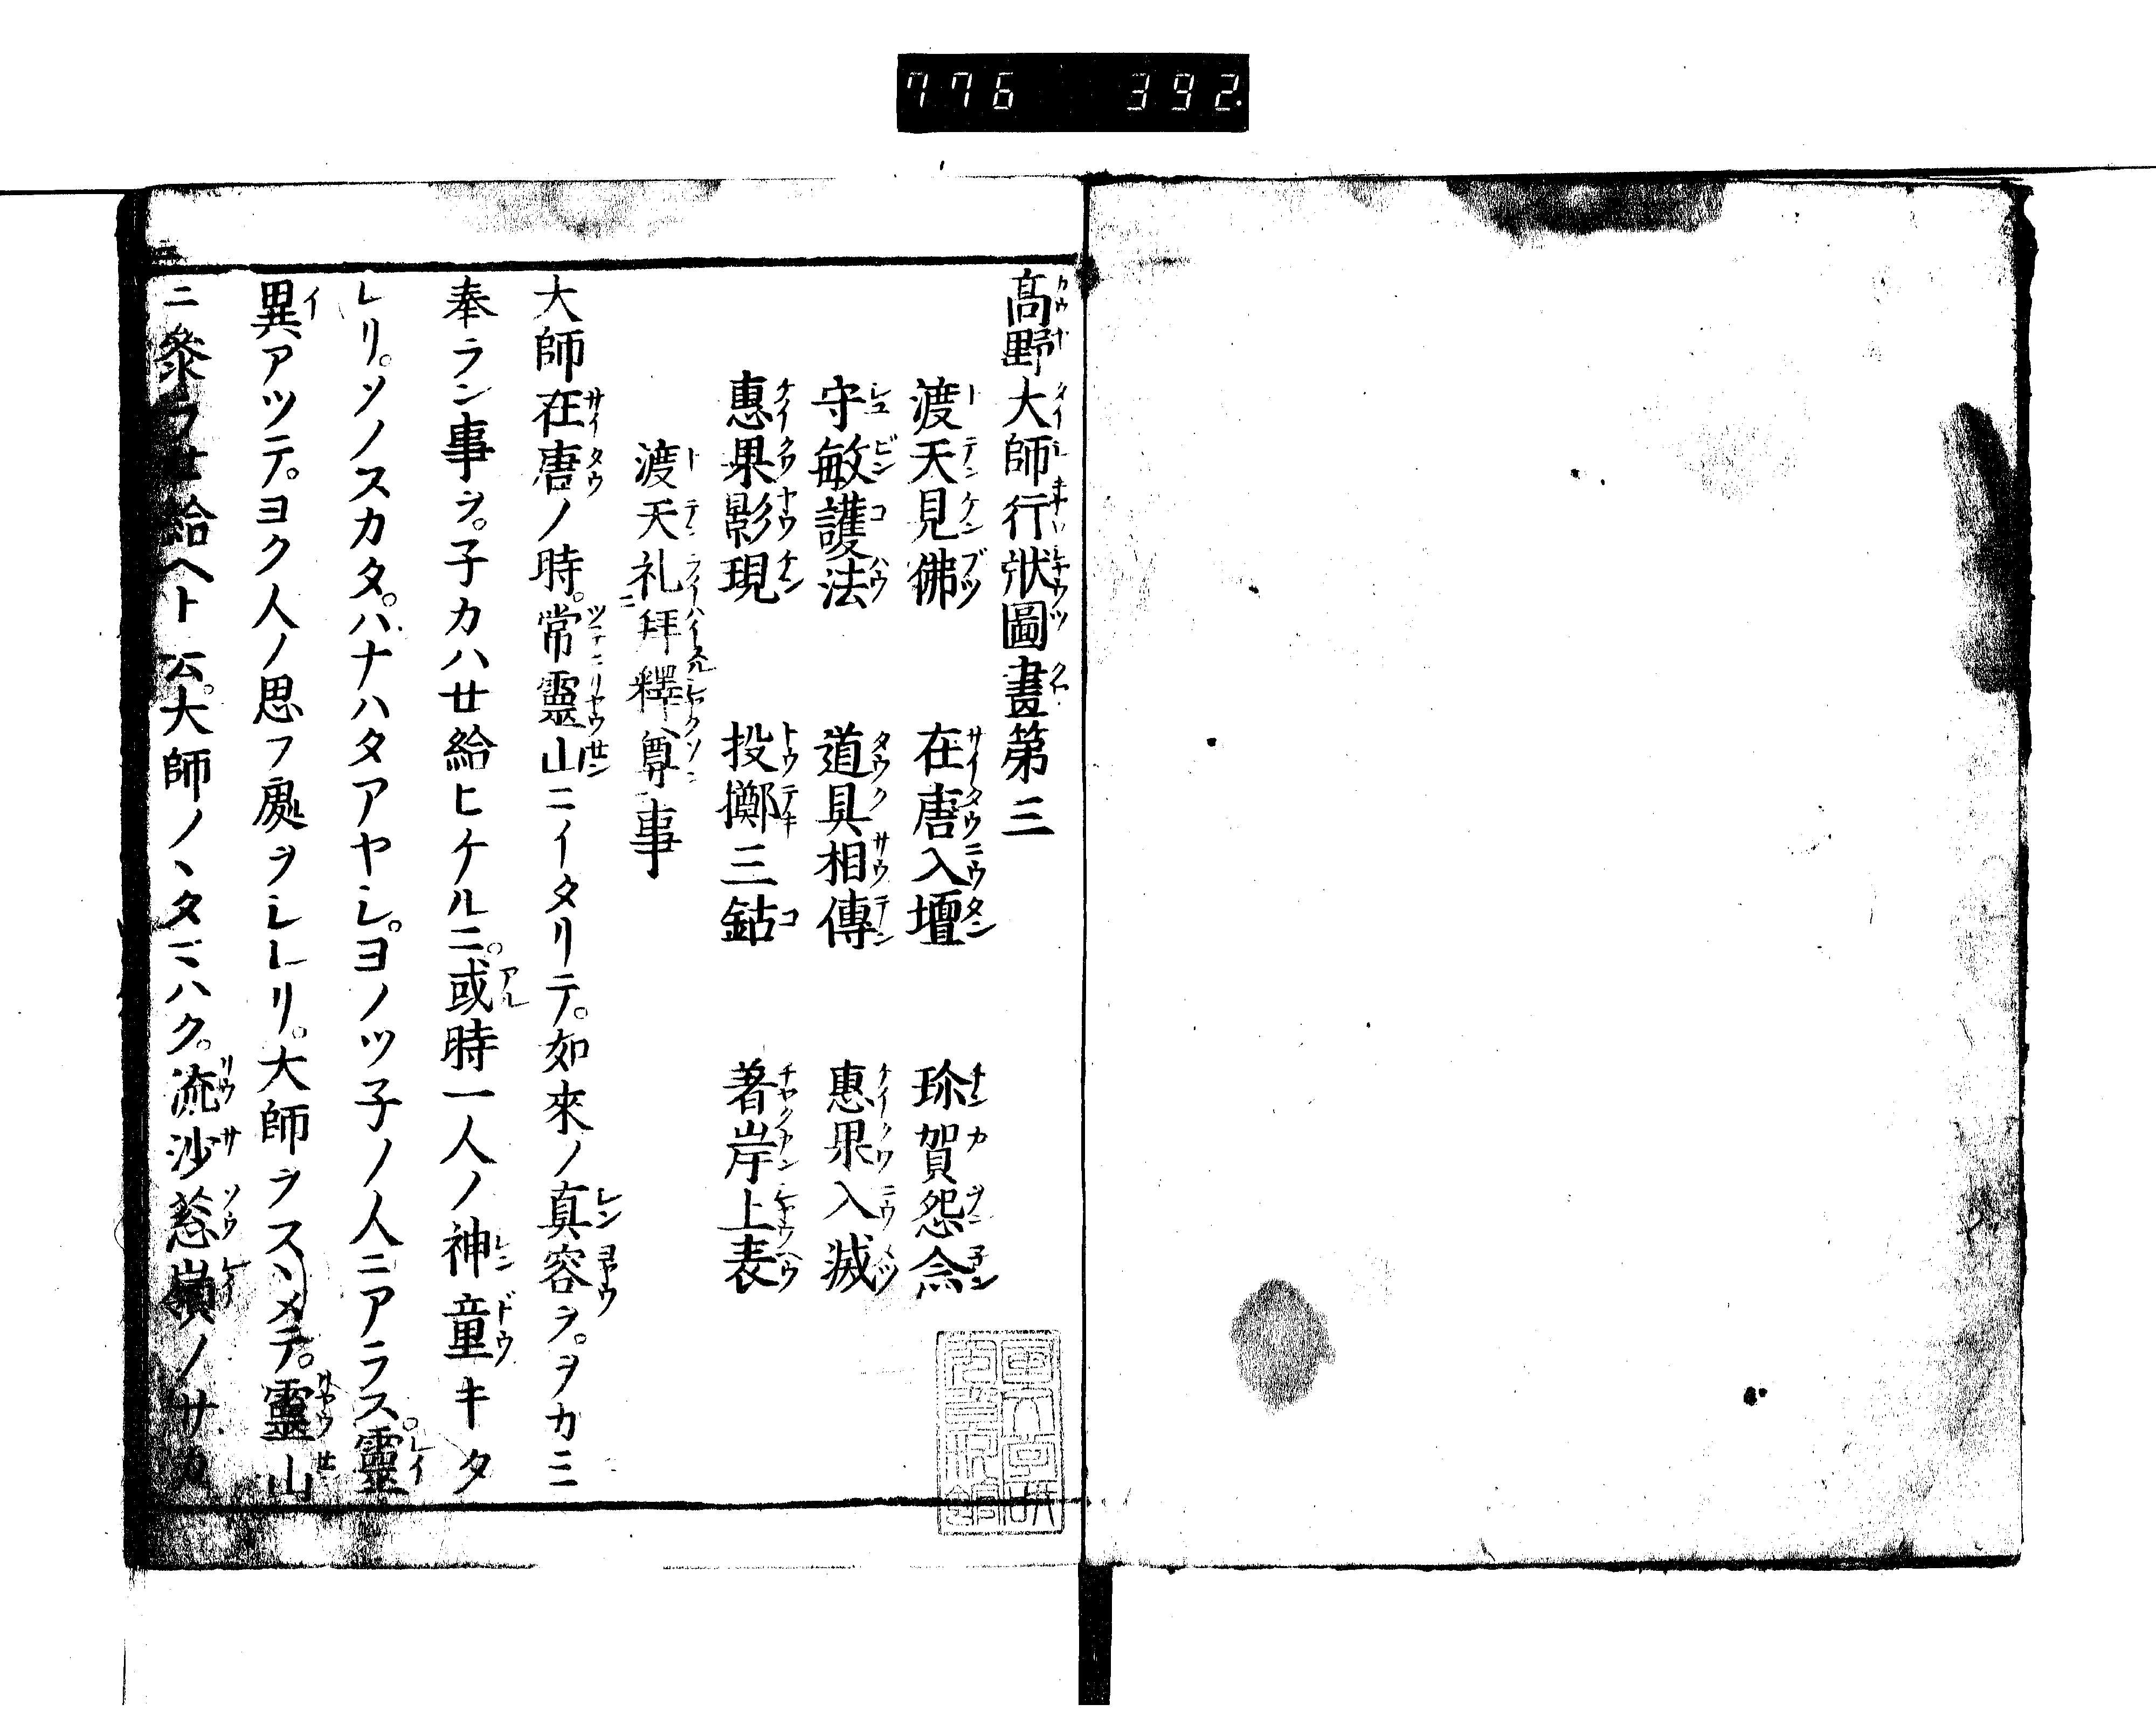 776 392
高野大師行狀圖畫第三
渡天見佛 在唐入壇 珎賀怨念
守敏護法 道具相傳 惠果入滅
惠果影現 投擲三鈷 著岸上表
渡天礼拜釋尊事
大師在唐ノ時。常靈山ニイタリテ。如來ノ真容ヲ。ヲカミ
奉ラン事ヲ。子カハせ給ヒケルニ。或時一人ノ神童キタ
レリ。ソノスカタ。ハナハタアヤシ。ヨノツ子ノ人ニアラス。靈
異アツテ。ヨク人ノ思フ處ヲシレリ。大師ヲスヽメテ。靈山
ニ參ラせ給ヘト云。大師ノヽタマハク。流沙葱嶺ノサカ